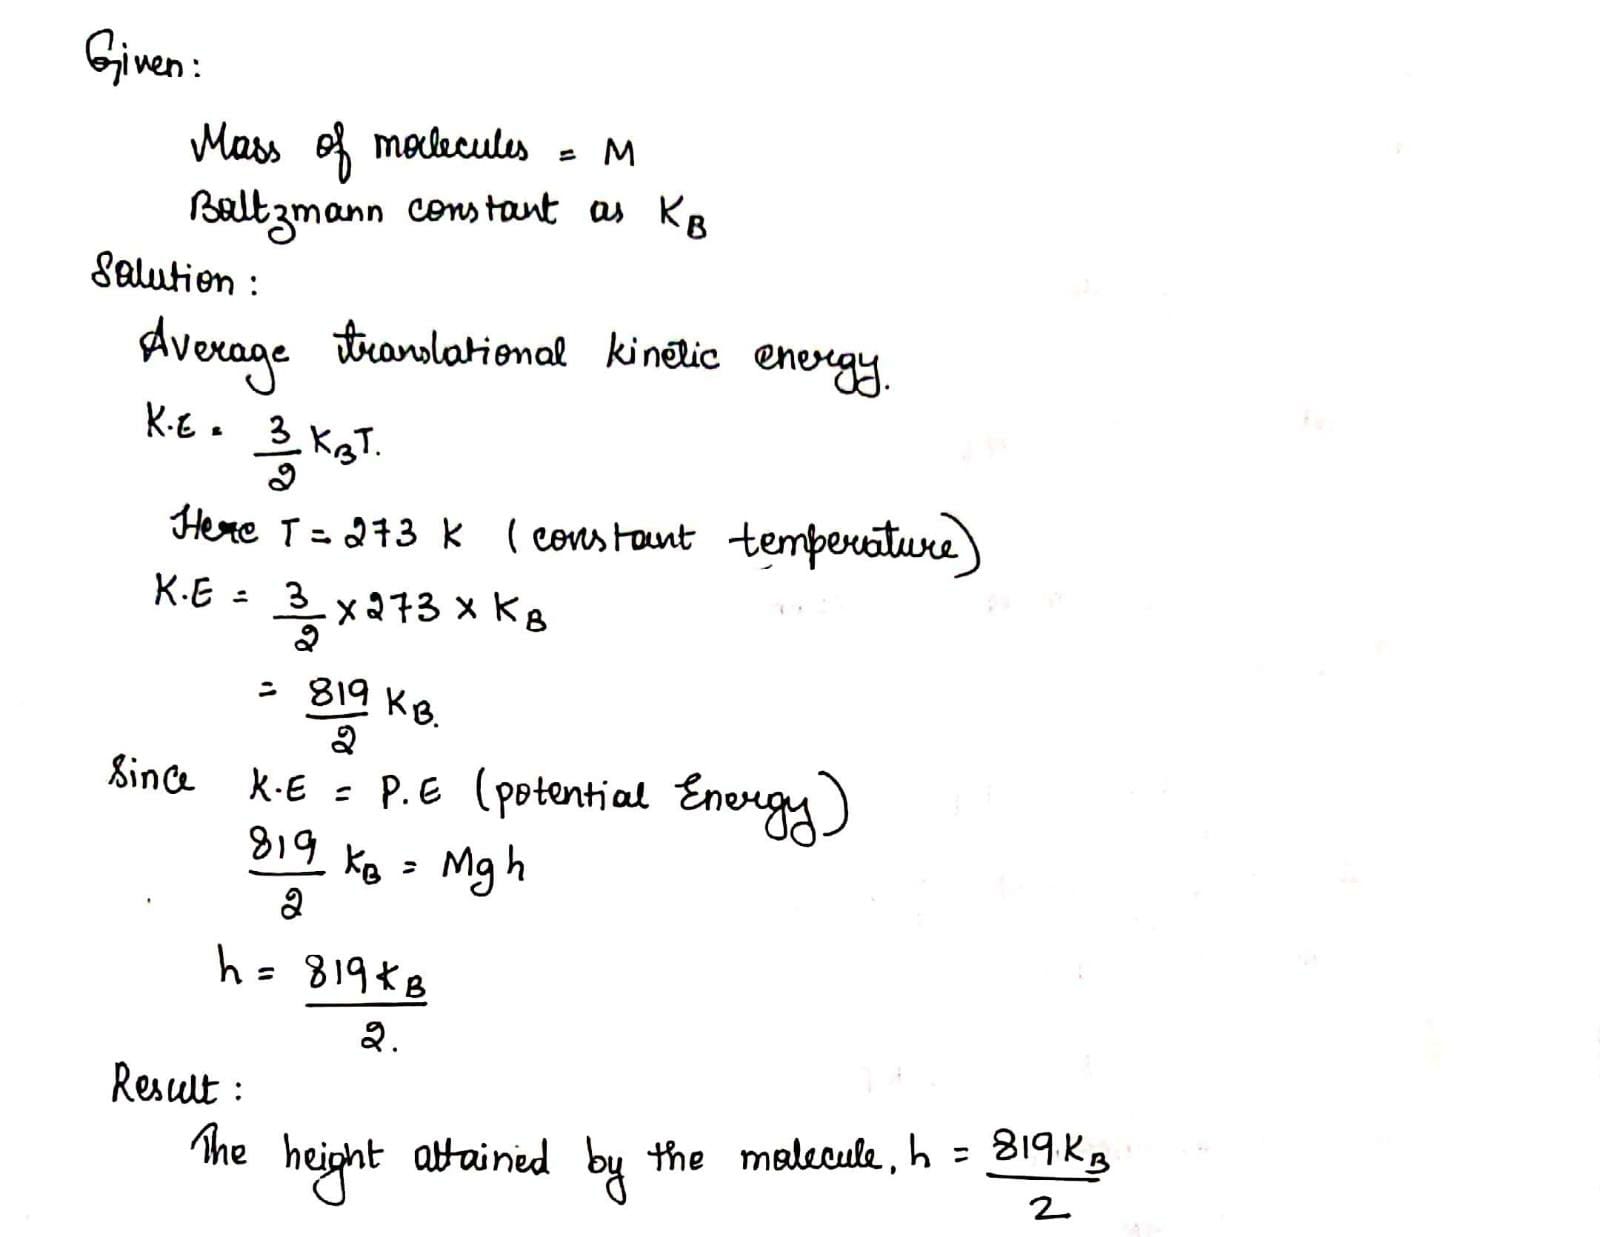 Given:
Mass of molecules = M
Boltzmann constant as K_B
Solution:
Average translational kinetic energy.
K.E = 3/2 K_B T.
Here T = 273 K (constant temperature)
K.E = 3/2 × 273 × K_B
= 819/2 K_B.
Since K.E = P.E (potential Energy)
819/2 K_B = Mgh
h = 819 K_B / 2.
Result:
The height attained by the molecule, h = 819.K_B / 2